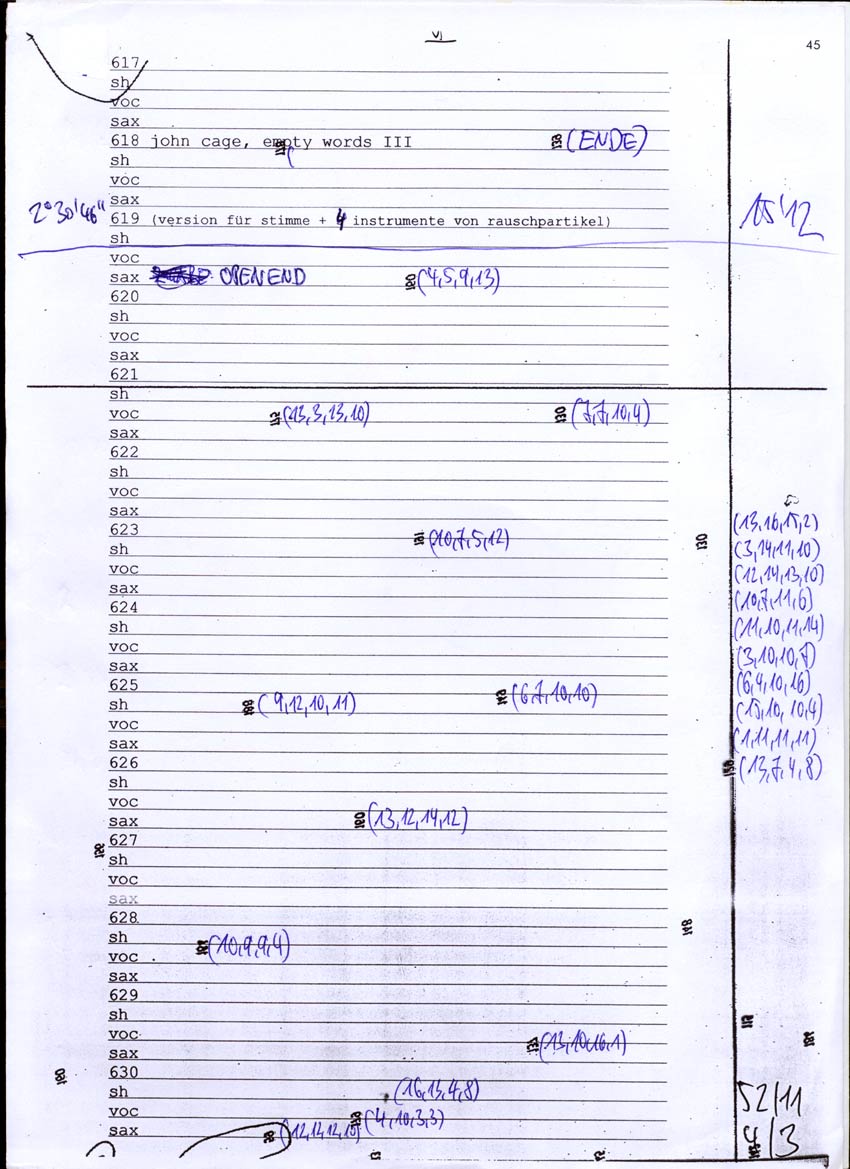 VI
45
617
sh
voc
sax
618 john cage, empty words III (ENDE)
sh
voc
sax
2°30'46" 619 (version für stimme + 4 instrumente von rauschpartikel) 15'12
sh
voc
sax OPEN END (4,5,9,13)
620
sh
voc
sax
621
sh
voc (13,3,13,10) (7,7,10,4)
sax
622
sh
voc
sax
623 (13,16,15,2)
sh (10,7,5,12) 130 (3,14,11,10)
voc (12,14,13,10)
sax (10,7,11,6)
624
sh (11,10,11,14)
voc (3,10,10,7)
sax
625 (6,4,10,16)
sh (9,12,10,11) (6,7,10,10) (15,10,10,4)
voc
sax (1,11,11,11)
626 (13,7,4,8)
sh
voc
sax (13,12,14,12)
627
sh
voc
sax
628
sh
voc (10,9,9,4)
sax
629
sh
voc
sax (13,10,16,1)
630
sh (16,13,4,8) 52/11
voc (4,10,3,3)
sax 4/3